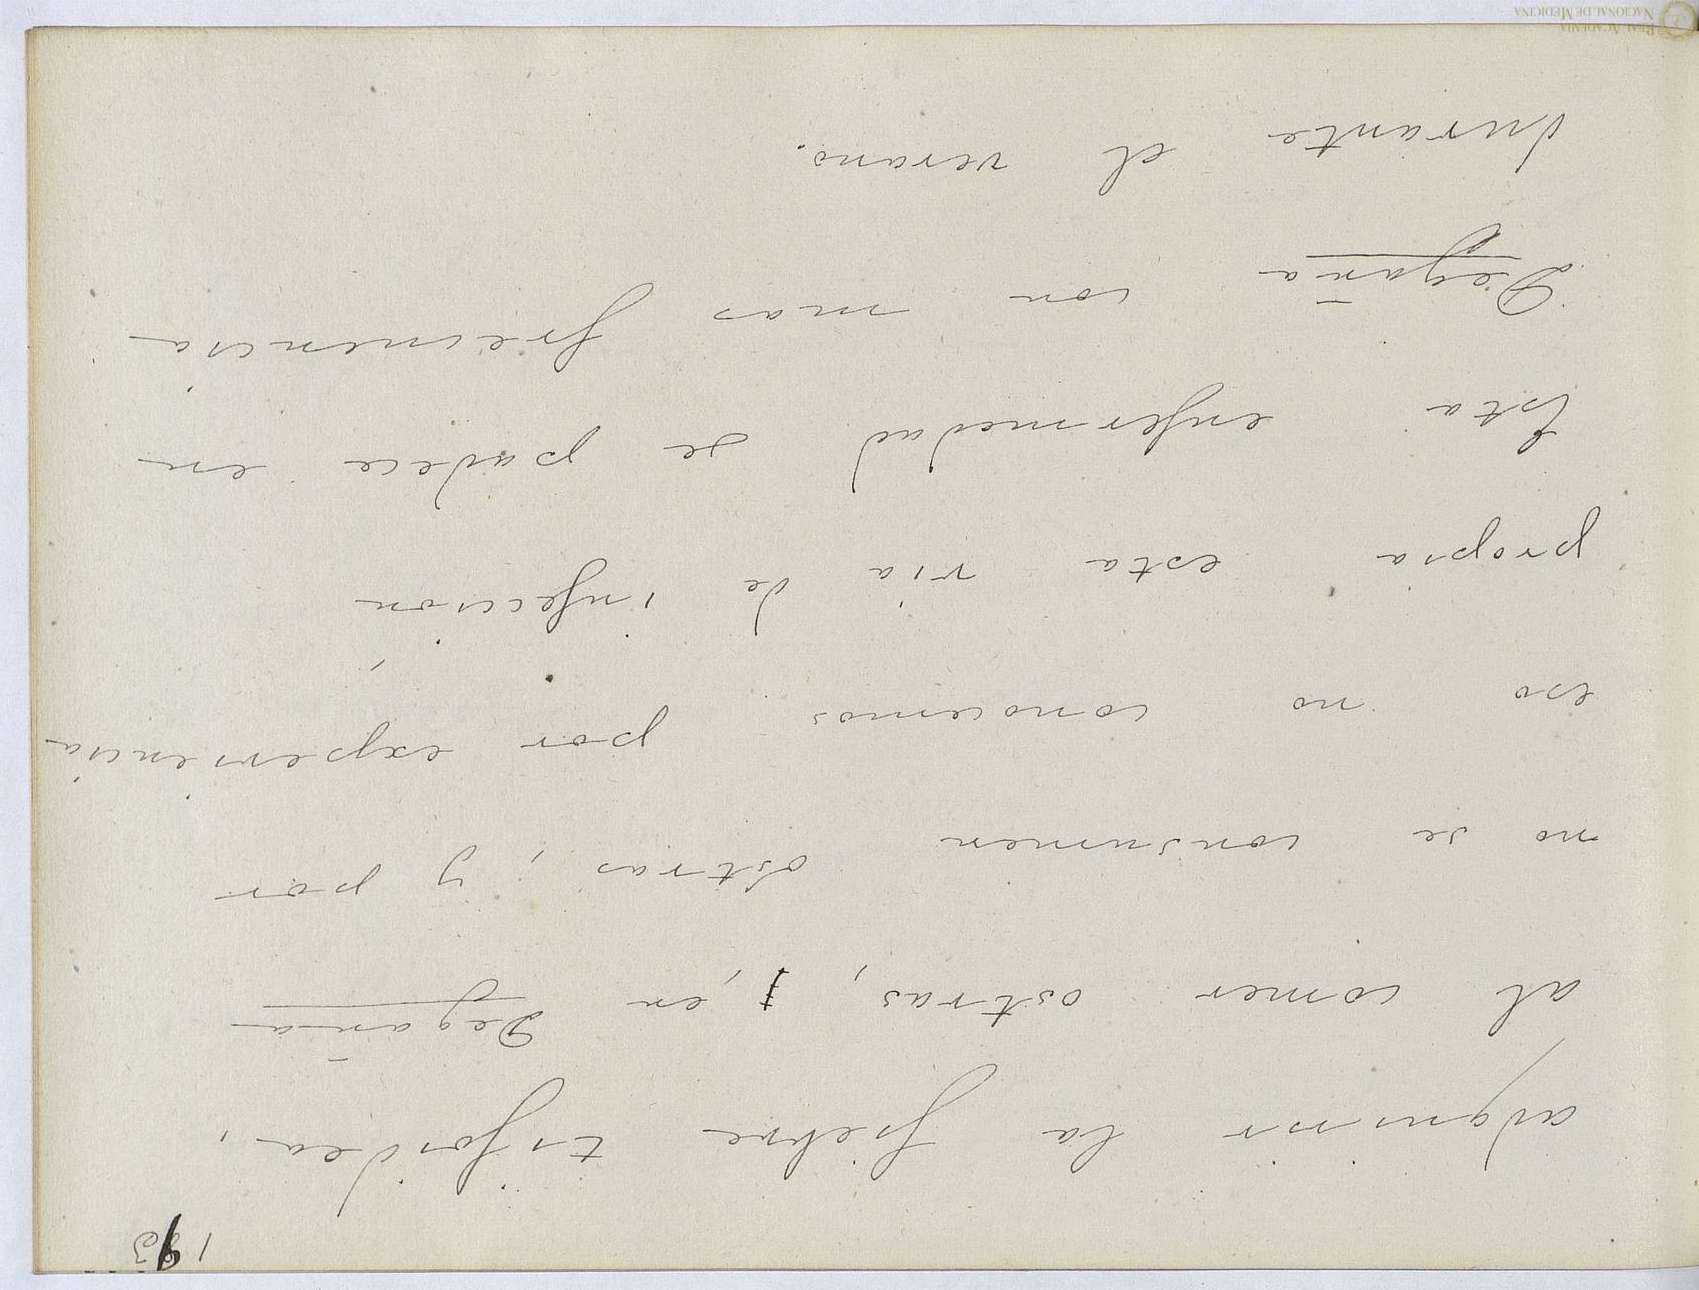 193
adquirir la fiebre tifoidea,
al comer ostras, en, Degaña
no se consumen ostras, y por
eso no conocemos por experiencia
propia esta via de infección,
Esta enfermedad se padece en
Degaña con mas frecuencia
durante el verano.
REAL ACADEMIA
NACIONAL DE MEDICINA